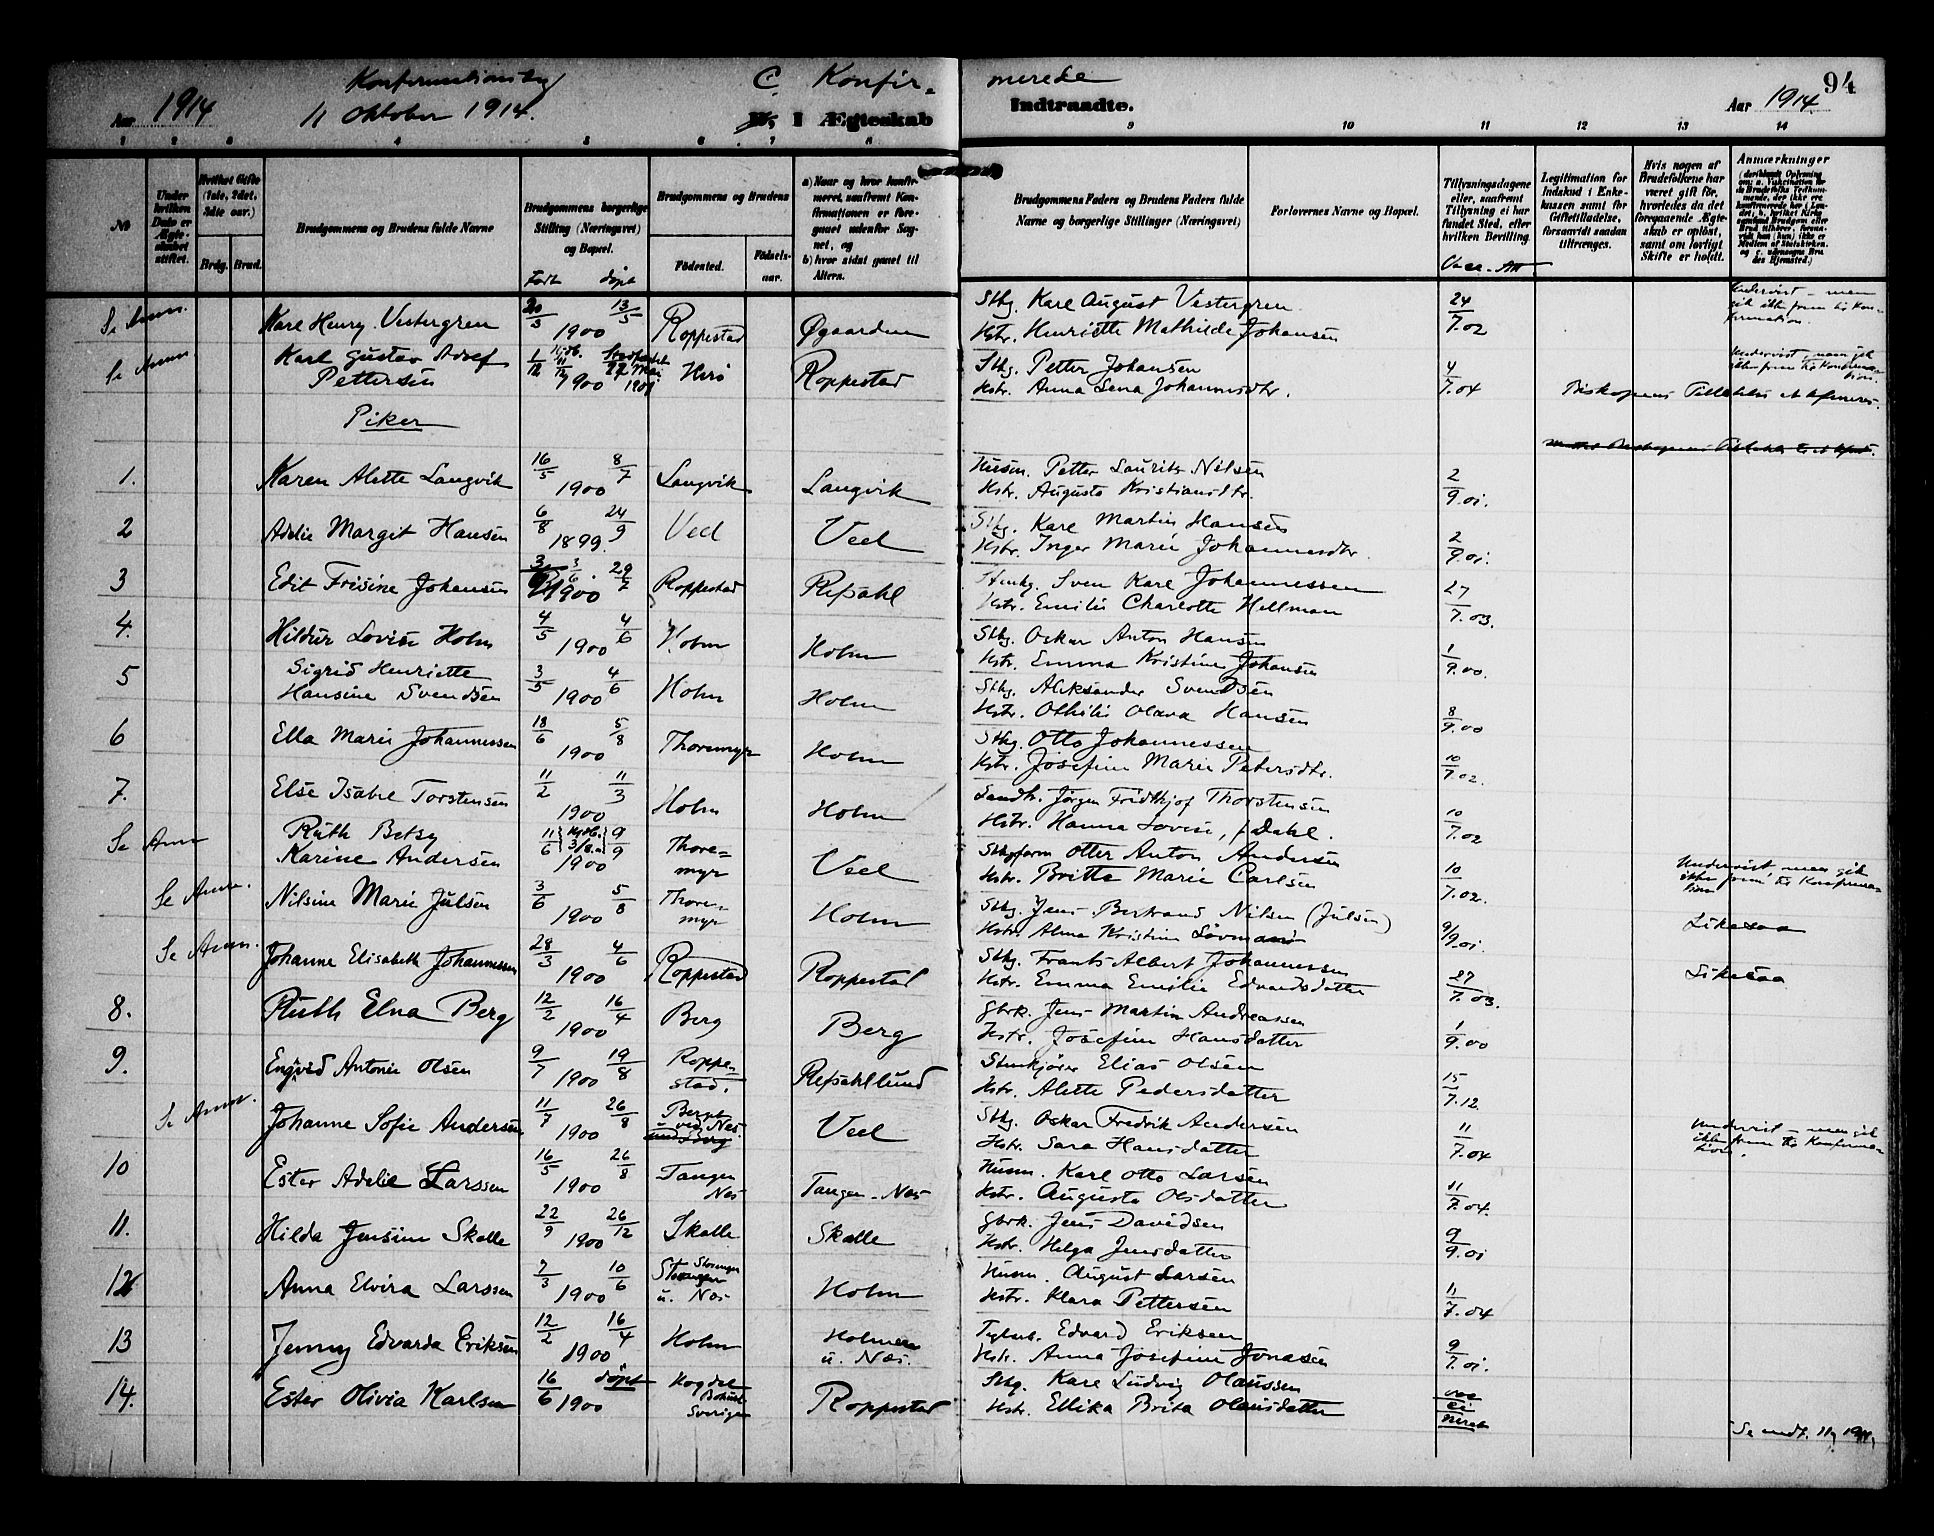 Konfirmationsdag C. Konfir- merede 94
Aar 1914 11 Oktober 1914. B. I Ægteskab Indtraadte. Aar 1914.
1 2 3 4 5 6 7 8 9 10 11 12 13 14
№
Under hvilken Dato er Ægteskabet stiftet.
Hvilket Gifte (1ste, 2det, 3die osv.)
Brdg. Brud.
Brudgommens og Brudens fulde Navne
Brudgommens borgerlige Stilling (Næringsvei) og Bopæl.
Født døpt
Brudgommens og Brudens
Fødested. Fødsels-aar.
a) Naar og hvor konfirmeret, saafremt Konfirmationen er foregaaet udenfor Sognet, og
b) hvor sidst gaaet til Alters.
Brudgommens Faders og Brudens Faders fulde Navne og borgerlige Stillinger (Næringsvei)
Forlovernes Navne og Bopæl.
Tillysningsdagene eller, saafremt Tillysning ei har fundet Sted, efter hvilken Bevilling.
Vacc. Att
Legitimation for Indskud i Enkekassen samt for Giftetilladelse, forsaavidt saadan tiltrænges.
Hvis nogen af Brudefolkene har været gift før, hvorledes da det foregaaende Ægteskab er opløst, samt om lovligt Skifte er holdt.
Anmærkninger
Se Anm. Karl Henry Vestergren 20/3 13/5 1900 Roppestad Øgaarden Sthg. Karl August Vestergren Hstr. Henriette Mathilde Johansen 24/7.02 Undervist – men gik ikke frem til Konfirmation.
Se Anm. Karl Gustav Adolf Pettersen 1/12 1900 Roppestad Sthg. Petter Johansen Hstr. Anna Lena Johannesdtr. 4/7.04 Undervist, men gik ikke frem til Konfirmation.
Biskopens Tilladelse
Piker
1. Karen Alette Langvik 16/5 8/7 1900 Langvik Langvik Husm. Petter Lauritz Nilsen Hstr. Augusta Kristiansdtr. 2/9.01.
2 Adele Margit Hansen 6/8 24/9 1899. Veel Veel Sthg. Karl Martin Hansen Hstr. Inger Marie Johannesdtr. 2/9.01.
3 Edit Frisine Johansen 3/6. 29/7 1900 Roppestad Refsahl Stenhg. Sven Karl Johannessen Hstr. Emilie Charlotte Hellman 27/7.03.
4. Hildur Lovise Holm 4/5 4/6 1900 Holm Holm Sthg. Oskar Anton Hansen Hstr. Emma Kristine Johansen 1/9.00.
5 Sigrid Henriette Hansine Svendsen 3/5 4/6 1900 Holm Holm Sthg. Aleksander Svendsen Hstr. Othilie Olava Hansen 8/9.00
6 Ella Marie Johannessen 18/6 5/8 1900 Thoremyr Holm Sthg. Otto Johannessen Hstr. Josefine Marie Petersdtr. 10/7.02.
7. Else Isabel Torstensen 11/2 11/3 1900 Holm Holm Landh. Jørgen Fridthjof Thorstensen Hstr. Hanna Lovise, f. Dahl. 10/7.02
Se Anm Ruth Betsy Karine Andersen 11/6 9/9 1900 Thore-myr Veel Otter Anton Andersen Hstr. Britta Marie Carlsen 10/7.02. Undervist, men gik ikke frem til Konfirmation.
Se Anm. Nilsine Marie Julsen 3/6 5/8 1900 Thore-myr Holm Sthg. Jens Bertrand Nilsen (Julsen) Hstr. Alma Kristine 9/9.01. Likesaa
Se Anm. Johanne Elisabeth Johannessen 28/3 4/6 1900 Roppestad Roppestad Sthg. Frants Albert Johannessen Hstr. Emma Emilie Edvardsdatter 27/7.03. Likesaa
8. Ruth Elna Berg 12/2 16/4 1900 Berg Berg Gbrk. Jens Martin Andreassen Hstr. Josefine Hansdatter 1/9.00
9. Engvald Antonie Olsen 9/7 19/8 1900 Roppe-stad. Refsahllund Elias Olsen Hstr. Alette Pedersdatter 15/7.12.
Se Anm. Johanne Sofie Andersen 11/7 26/8 1900 Berget ved Næs Veel Sthg. Oskar Fredrik Andersen Hstr. Sara Hansdatter 11/7.04 Undervist – men gik ikke frem til Konfirmation.
10 Ester Adelie Larssen 16/5 26/8 1900 Tangen Næs Tangen-Næs Husm. Karl Otto Larsen Hstr. Augusta Olsdatter 11/7.04.
11. Hilda Jensine Skalle 22/9 26/12 1900 Skalle Skalle Gbrk. Jens Davidsen Hstr. Helga Jensdatter 9/9.01
12 Anna Elvira Larssen 7/3 10/6 1900 u. Næs Holm Husm. August Larsen Hstr. Klara Pettersen 11/7.04
13 Jenny Edvarda Eriksen 12/2 16/4 1900 Holm Holmen u. Næs. Edvard Eriksen Hstr. Anna Josefine Jonasen 9/7.01.
14. Ester Olivia Karlsen 16/6 døpt 1900 Sverige Roppestad Sthg. Karl Ludvig Olaussen Hstr. Ellika Brita Olausdatter